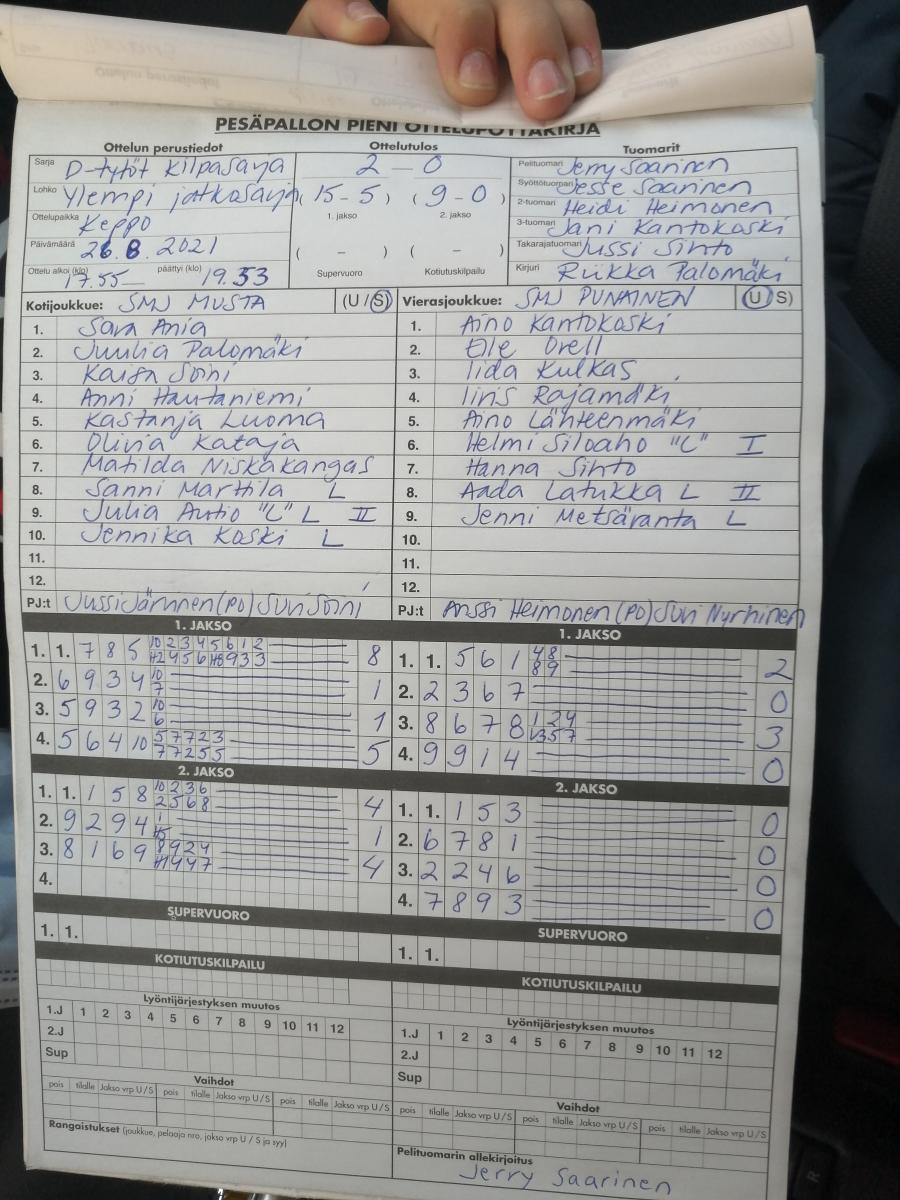 PESÄPALLON PIENI OTTELUPÖYTÄKIRJA
Ottelun perustiedot
Ottelutulos
Tuomarit
Sarja D-tytöt kilpasarja
2 – 0
Pelituomari Jerry Saarinen
Lohko Ylempi jatkosarja
(15 - 5) (9 - 0)
Syöttötuomari Jesse Saarinen
1. jakso 2. jakso
2-tuomari Heidi Heimonen
Ottelupaikka Keppo
3-tuomari Jani Kantokoski
Päivämäärä 26.8.2021
( – ) ( – )
Takarajatuomari Jussi Sihto
Ottelu alkoi (klo) 17.55 — päättyi (klo) 19.53
Supervuoro Kotiutuskilpailu
Kirjuri Riikka Palomäki
Kotijoukkue: SMJ MUSTA (U / S)
1. Sara Ania
2. Juulia Palomäki
3. Kaisa Soini
4. Anni Hautaniemi
5. Kastanja Luoma
6. Olivia Kataja
7. Matilda Niskakangas
8. Sanni Marttila L
9. Julia Autio "C" L II
10. Jennika Koski L
11.
12.
PJ:t Jussi Järvinen (PO) Suvi Soini
Vierasjoukkue: SMJ PUNAINEN (U S)
1. Aino Kantokoski
2. Elle Orell
3. Iida Kulkas
4. Iiris Rajamäki
5. Aino Lähteenmäki
6. Helmi Siloaho "C" I
7. Hanna Sihto
8. Aada Latukka L II
9. Jenni Metsäranta L
10.
11.
12.
PJ:t Anssi Heimonen (PO) Suvi Nyrhinen
1. JAKSO
1. 1. 7 8 5 8
2. 6 9 3 4 10 7 1
3. 5 9 3 2 10 6 1
4. 5 6 4 10 5 7 7 2 3 5
7 7 2 5 5
2. JAKSO
1. 1. 1 5 8 10 2 3 6 4
2 5 6 8
2. 9 2 9 4 1
3. 8 1 6 9 8 9 2 4 4
4.
SUPERVUORO
1. 1.
KOTIUTUSKILPAILU
Lyöntijärjestyksen muutos
1.J 1 2 3 4 5 6 7 8 9 10 11 12
2.J
Sup
Vaihdot
pois tilalle Jakso vrp U / S pois tilalle Jakso vrp U / S pois tilalle Jakso vrp U / S
Rangaistukset (joukkue, pelaaja nro, jakso vrp U / S ja syy)
1. JAKSO
1. 1. 5 6 1 4 8 2
8 9
2. 2 3 6 7 0
3. 8 6 7 8 1 2 4 3
4. 9 9 1 4 0
2. JAKSO
1. 1. 1 5 3 0
2. 6 7 8 1 0
3. 2 2 4 6 0
4. 7 8 9 3 0
SUPERVUORO
1. 1.
KOTIUTUSKILPAILU
Lyöntijärjestyksen muutos
1.J 1 2 3 4 5 6 7 8 9 10 11 12
2.J
Sup
Vaihdot
pois tilalle Jakso vrp U / S pois tilalle Jakso vrp U / S pois tilalle Jakso vrp U / S
Pelituomarin allekirjoitus
Jerry Saarinen